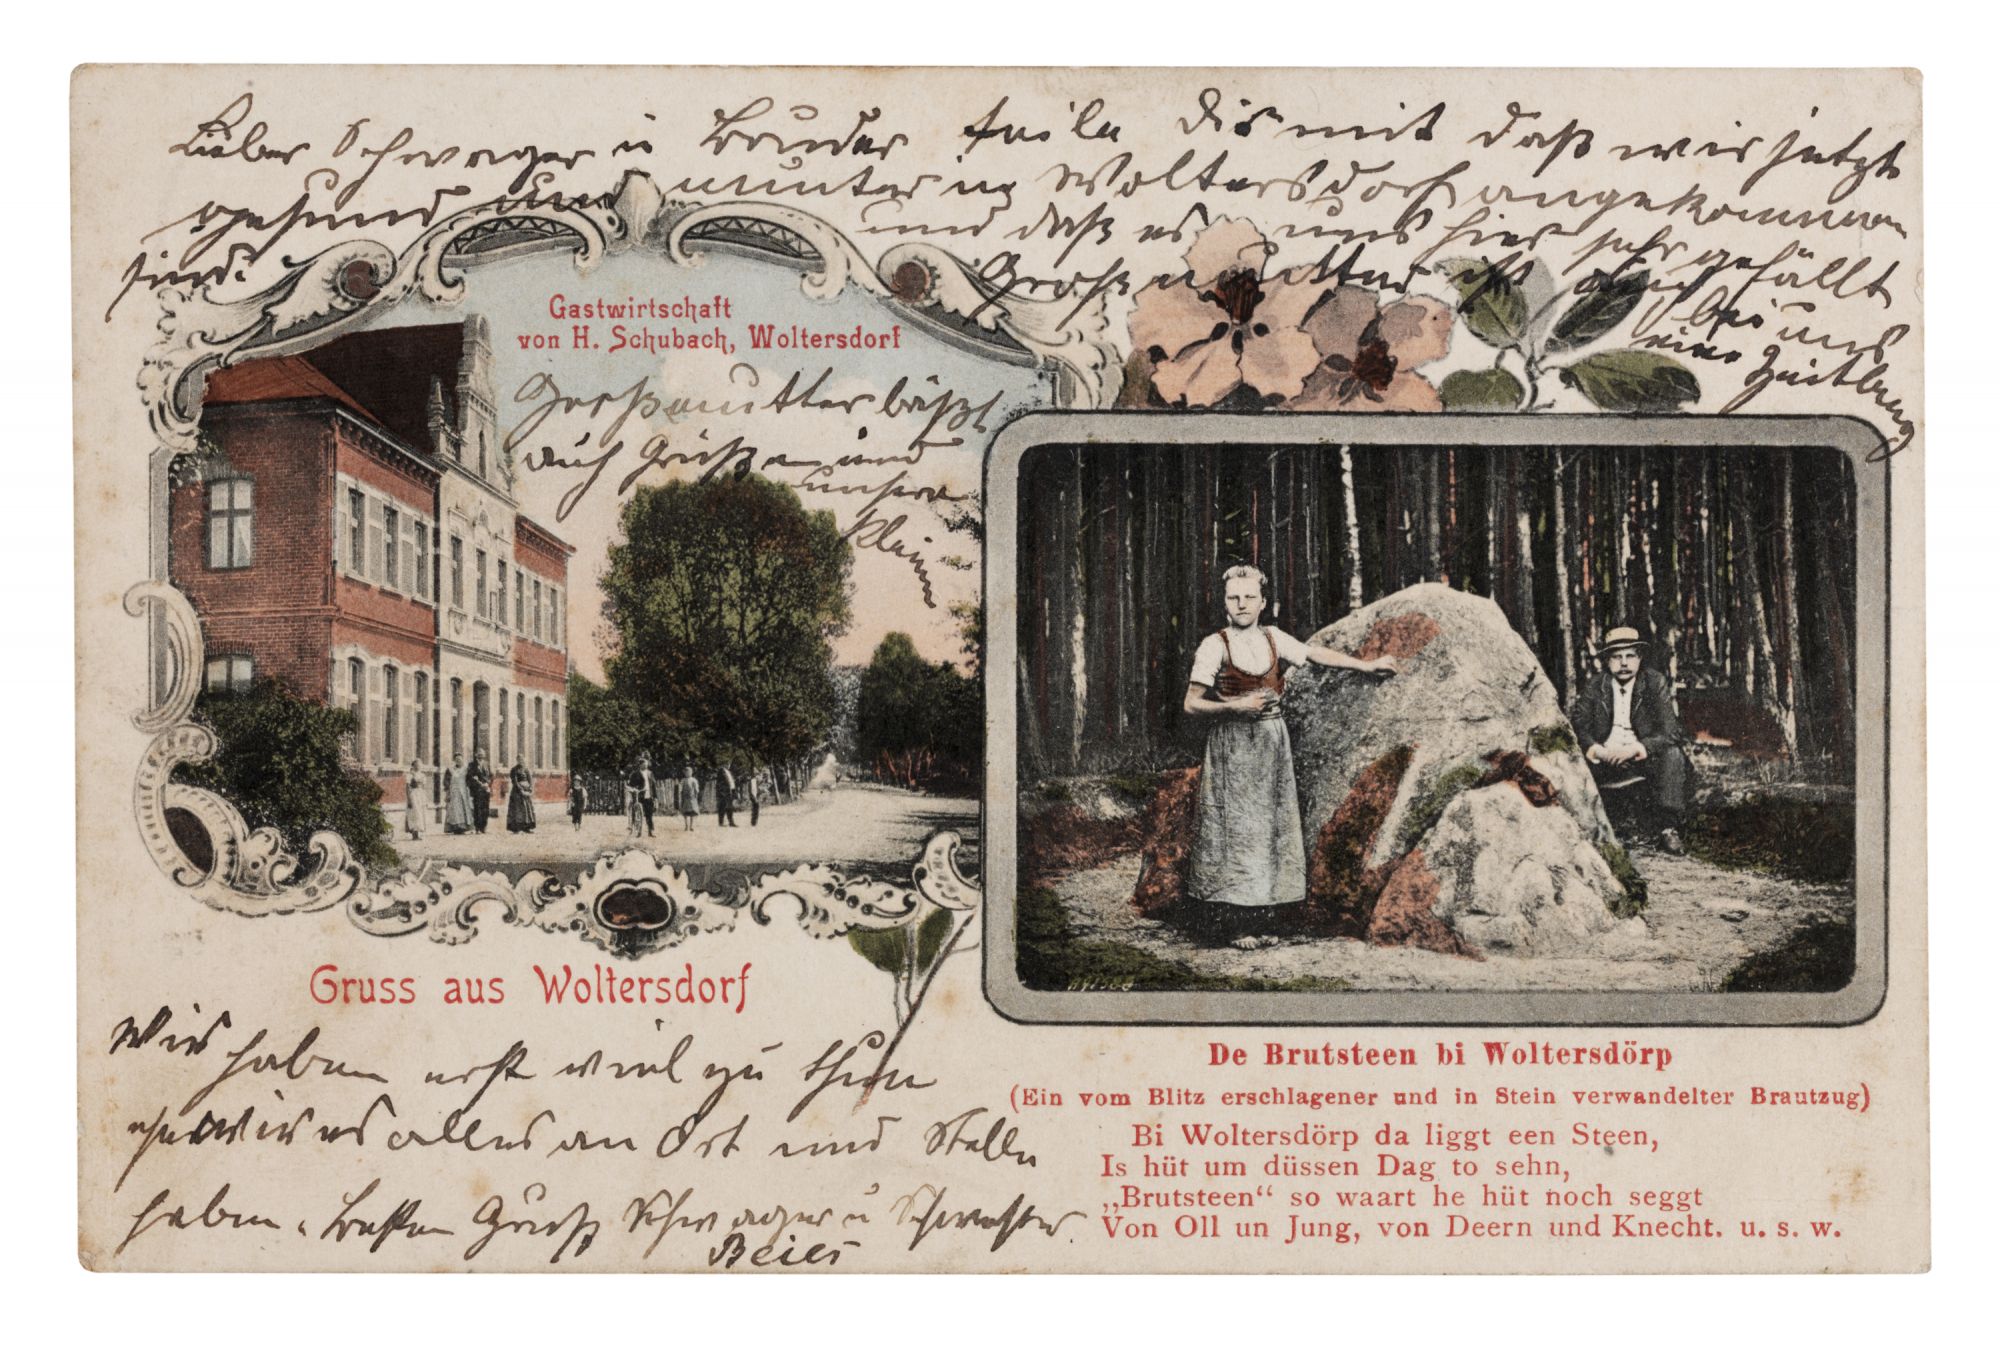 Lieber Schwager u Bruder teile Dir mit daß wir jetzt
gesund und munter in Woltersdorf angekommen
sind. und daß es uns hier sehr gefällt
Großmutter ist auch bei uns
eine Zeitlang
Gastwirtschaft
von H. Schubach, Woltersdorf
Großmutter läßt
auch Grüßen und
unsere
Kleinen
Gruss aus Woltersdorf
Wir haben erst viel zu thun
ehe wir es alles an Ort und Stelle
haben. Besten Gruß Schwager u Schwester
Beier
De Brutsteen bi Woltersdörp
(Ein vom Blitz erschlagener und in Stein verwandelter Brautzug)
Bi Woltersdörp da liggt een Steen,
Is hüt um düssen Dag to sehn,
„Brutsteen“ so waart he hüt noch seggt
Von Oll un Jung, von Deern und Knecht. u. s. w.